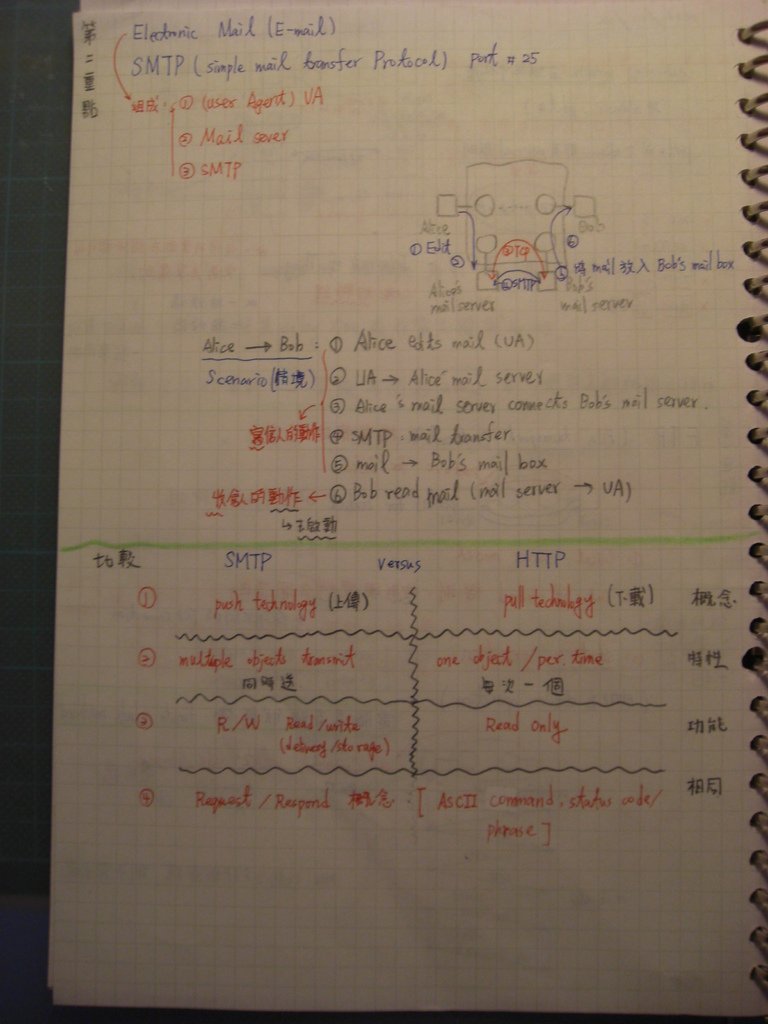 第二重點
Electronic Mail (E-mail)
SMTP (simple mail transfer Protocol) Port # 25
組成: ① (user Agent) UA
② Mail sever
③ SMTP
Alice
Bob
① Edit
②
③ TCP
④ SMTP
⑤ 將 mail 放入 Bob's mail box
⑥
Alice's mail server
Bob's mail server
Alice → Bob: ① Alice edits mail (UA)
Scenario (情境) ② UA → Alice' mail server
③ Alice's mail server connects Bob's mail server.
寄信人的動作 ④ SMTP: mail transfer
⑤ mail → Bob's mail box
收信人的動作 ← ⑥ Bob read mail (mail server → UA)
↳ 主啟動
比較 SMTP versus HTTP
① push technology (上傳) pull technology (下載) 概念
② multiple objects transmit one object / per. time 特性
同時送 每次一個
③ R/W Read/write Read Only 功能
(delivery/storage)
相同
④ Request / Respond 概念: [ ASCII command, status code/
phrase ]